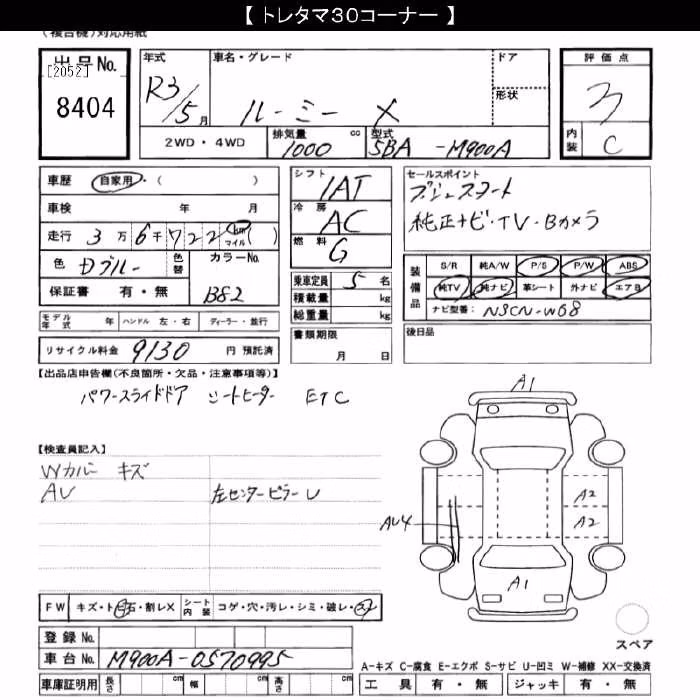 【トレタマ30コーナー】
(複合機)対応用紙
出品No. 年式 車名・グレード ドア 評価点
[2052]
8404 R3/5月 ルーミー X 形状 3
2WD・4WD 排気量 1000 cc 型式 5BA-M900A 内装 C
車歴 自家用・( ) シフト 1AT セールスポイント
プッシュスタート
車検 年 月 冷房 AC 純正ナビ・TV・Bカメラ
走行 3万6千722 km マイル ( ) 燃料 G
色 Dブルー 色替 カラーNo. 装備品 S/R 純A/W P/S P/W ABS
保証書 有・無 B82 乗車定員 5名 純TV 純ナビ 革シート 外ナビ エアB
積載量 kg ナビ型番: NSCN-W68
総重量 kg
モデル年式 年 ハンドル 左・右 ディーラー・並行 書類期限 後日品
リサイクル料金 9130 円 預託済 月 日
【出品店申告欄(不良箇所・欠品・注意事項等)】
パワースライドドア シートヒーター ETC
A1
【検査員記入】
Wカバー キズ
AU 左センターピラーU
A2
AU4 A2
A1
FW キズ・ト・石・割レX シート内装 コゲ・穴・汚レ・シミ・破レ・
登録No.
スペア
車台No. M900A-0570995
A-キズ C-腐食 E-エクボ S-サビ U-凹ミ W-補修 XX-交換済
車庫証明用 長さ cm 幅 cm 高さ cm 工具 有・無 ジャッキ 有・無